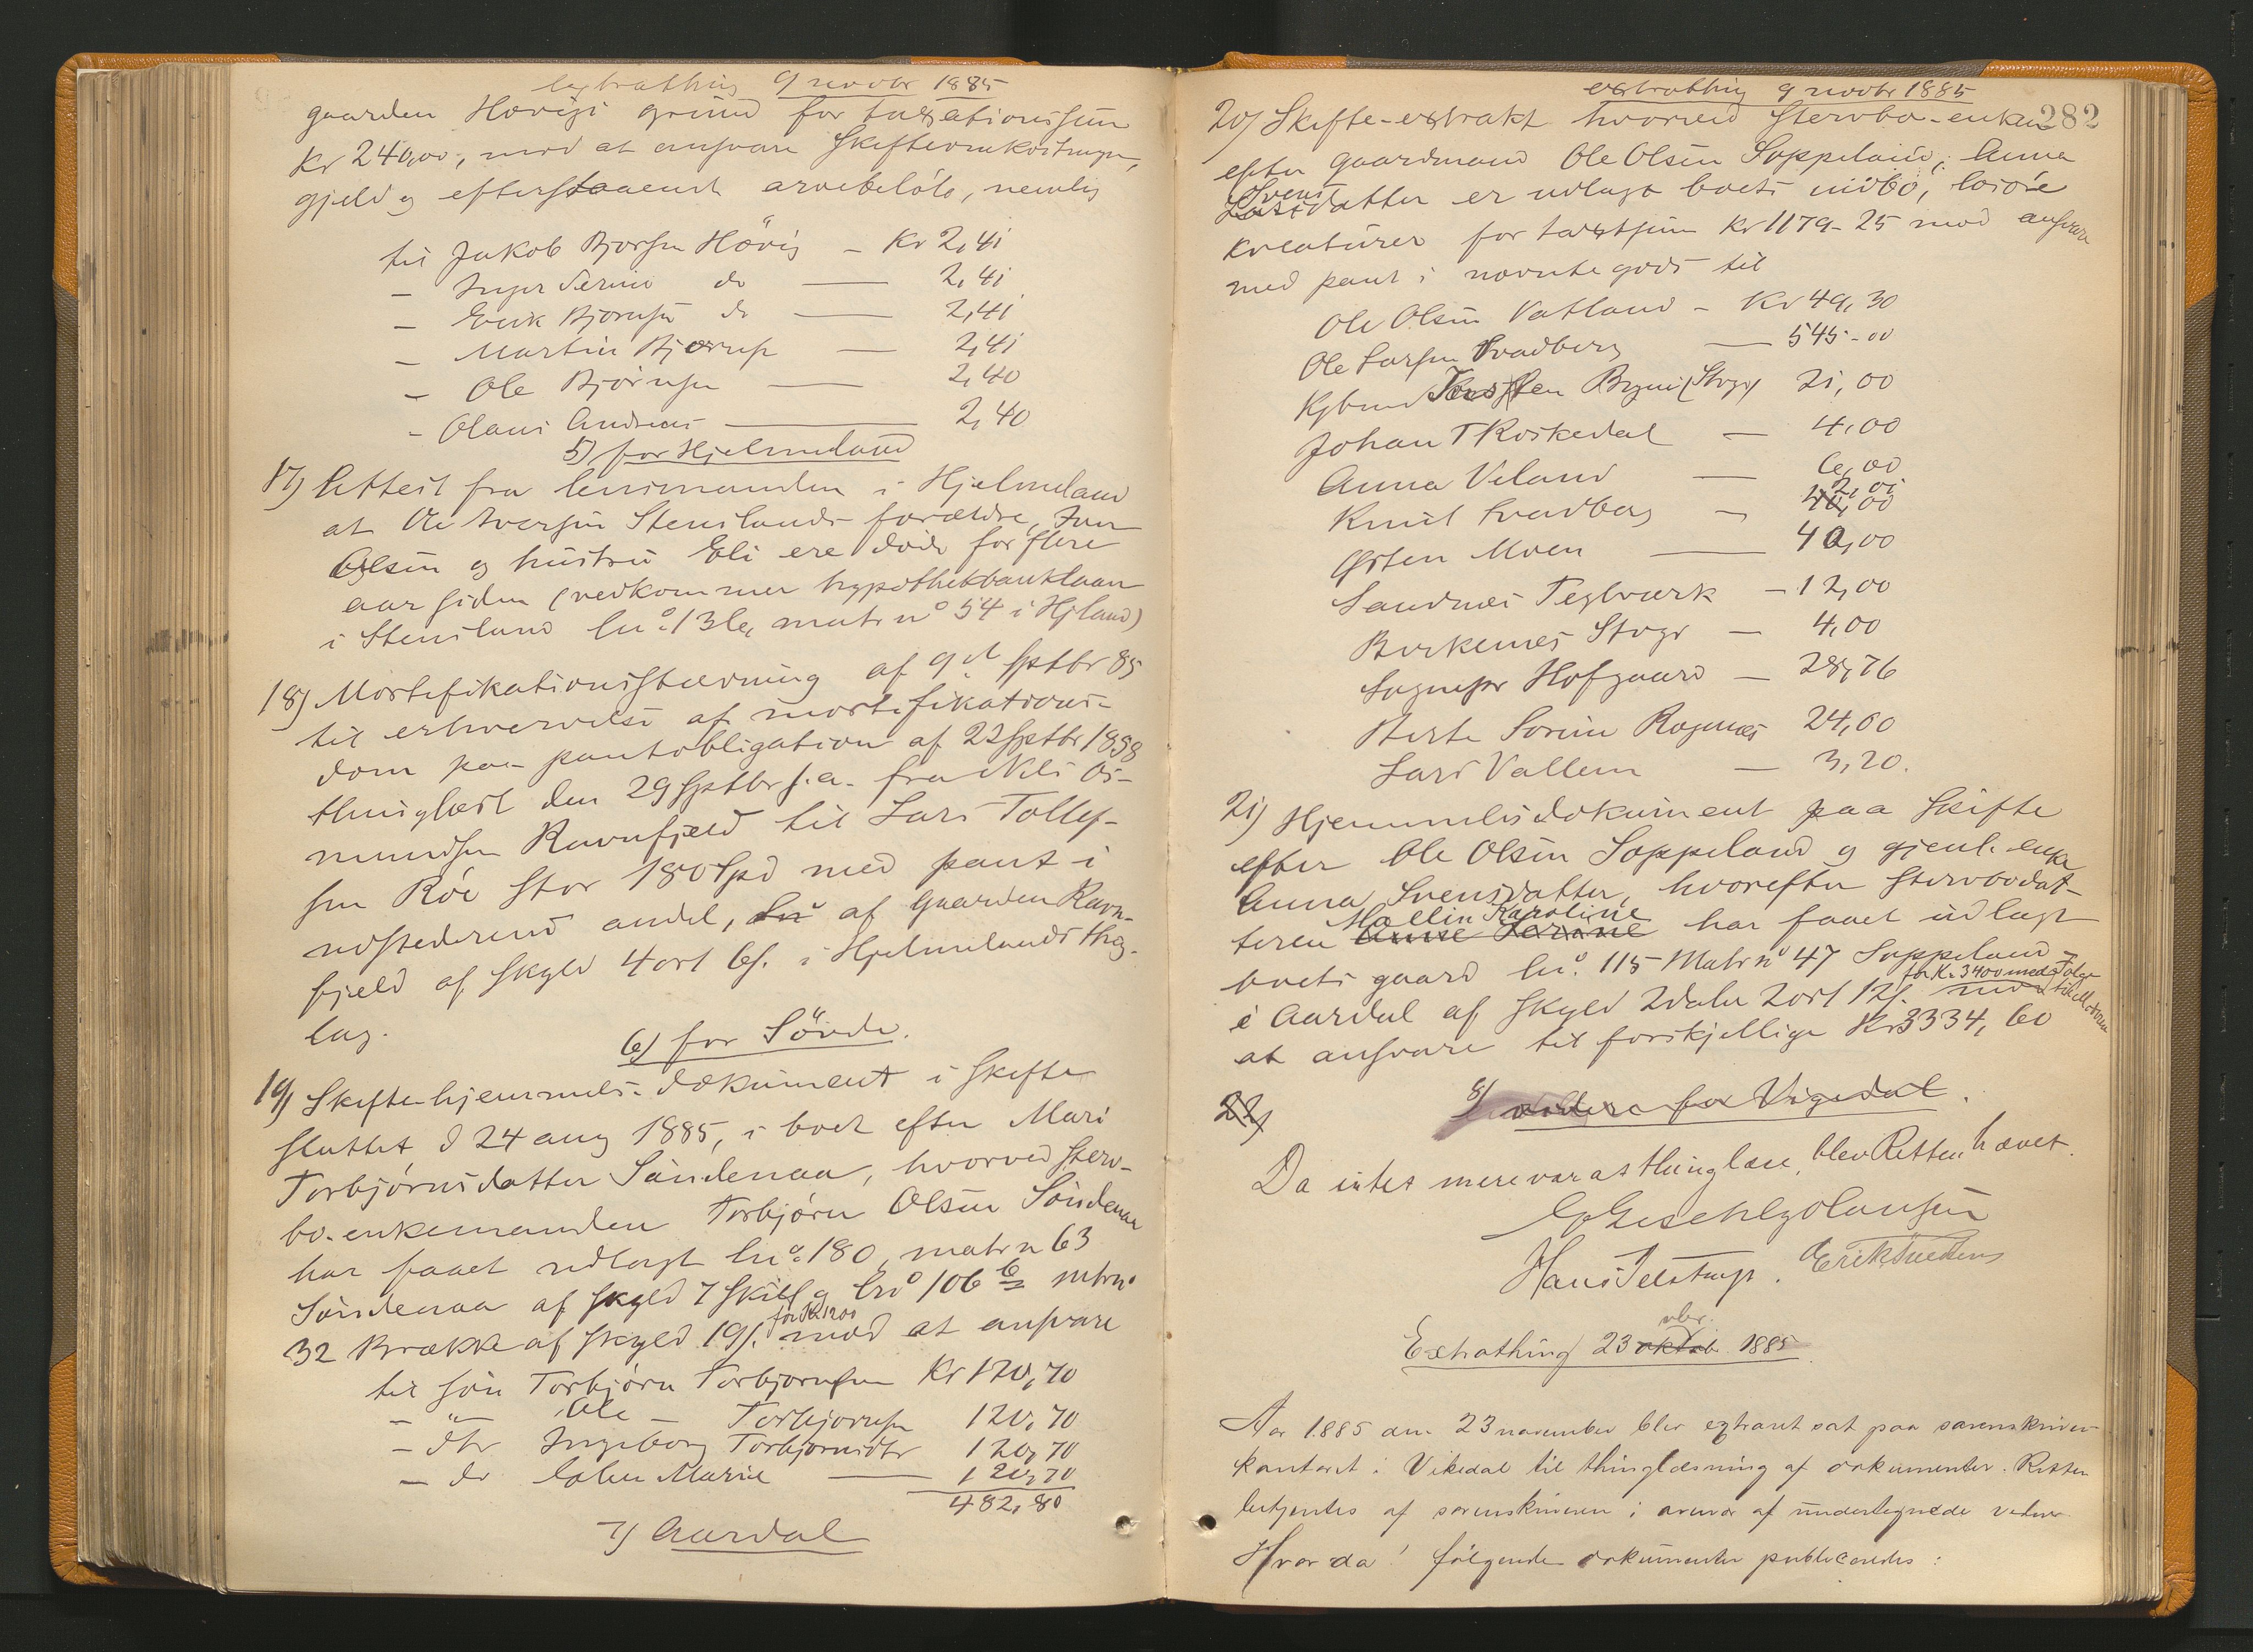 extrathing 9 novbr 1885
gaarden Hovigs grund for taxationssum
Kr 240,00, mod at ansvare skifteomkostninger,
gjeld og efterstaaende arvebeløb, nemlig
til Jakob Bjorsen Hövig - Kr 2,41
- Inger Serine do — 2,41
- Erik Bjørnsen do — 2,41
- Martin Bjørnsen — 2,41
- Ole Bjørnsen — 2,40
- Olaus Andreas — 2,40
5) for Hjelmeland
17) Attest fra lensmanden i Hjelmeland
at Ole Iversen Stenslands forældre, Iver
Olsen og hustru Eli ere døde for flere
aar siden (vedkommer hypothekbanklaan
i Stensland lnº 136, matr nº 54 i Hjland)
18) Mortifikationsstævning af 9d septbr 85
til erhvervelse af mortifikations-
dom paa pantobligation af 22 septbr 1858
thinglæst den 29 septbr s.a. fra Nils Os-
mundsen Ravnfjeld til Lars Tollef-
sen Röe stor 180 Spd med pant i
udstederens andel, lnº af gaarden Ravn-
fjeld af skyld 4 ort 6s. i Hjelmelands thing-
lag.
6) for Søvde.
19) Skifte-hjemmels-dokument i skifte
sluttet d 24 aug 1885, i boet efter Mari
Torbjørnsdatter Søndenaa, hvorved sterv-
bo-enkemanden Torbjørn Olsen Søndenaa
har faaet udlagt lnº 180, matr n 63
Søndenaa af skyld 7 skill og lnº 106 b mtrnº
for Kr 1200
32 Brække af skyld 19s. mod at ansvare
til søn Torbjørn Torbjørnsen Kr 120,70
- " Ole - Torbjørnsen 120,70
- dtr Ingeborg Torbjørnsdtr 120,70
- do Marie — 120,70
482,80
7) Aardal
extrathing 9 novbr 1885
282
20) Skifte-extrakt hvorved stervbo-enken
efter gaardmand Ole Olsen Soppeland, Anna
Svens
Larsdatter er udlagt boets indbo, løsøre
kreaturer for taxtsum Kr 1179-25 mod ansvare
med pant i nævnte gods til
Ole Olsen Vatland - Kr 49,30
Ole Larsen Svadberg — 545-00
Kjbmd Torsten Bryne (Stvgr) 21,00
Johan T Roskedal — 4,00
Anna Veland — 6,00
2,01
Knut Svadberg - 40,00
Østen Moen — 40,00
Sandnes Teglværk - 12,00
Birkenes Stvgr — 4,00
Sognepr Hofgaard — 28,76
Berte Serine Rognnes 24,00
Lars Vallem — 3,20.
21) Hjemmelsdokument paa skifte
efter Ole Olsen Soppeland og gjenl. enke
Anna Svensdatter, hvorefter stervbodat-
Mallin Karoline
teren Anne Serine har faaet udlagt
boets gaard lnº 115 Matr nº 47 Soppeland
for Kr 3400 med
i Aardal af skyld 2 daler 2 ort 12s. mod
at ansvare til forskjellige Kr 3334,60
22)
8) videre for Vigedal.
Da intet mere var at thinglæse, blev Retten hævet.
Hans Jelstrup. Erik Svedens
nbr.
Extrathing 23 oktob. 1885
Aar 1885 den 23 november blev extraret sat paa sorenskriver-
kontoret i Vikedal til thinglæsning af dokumenter. Retten
betjentes af sorenskriveren i overvær af undertegnede vidner
Hvorda! følgende dokumenter publiceredes: